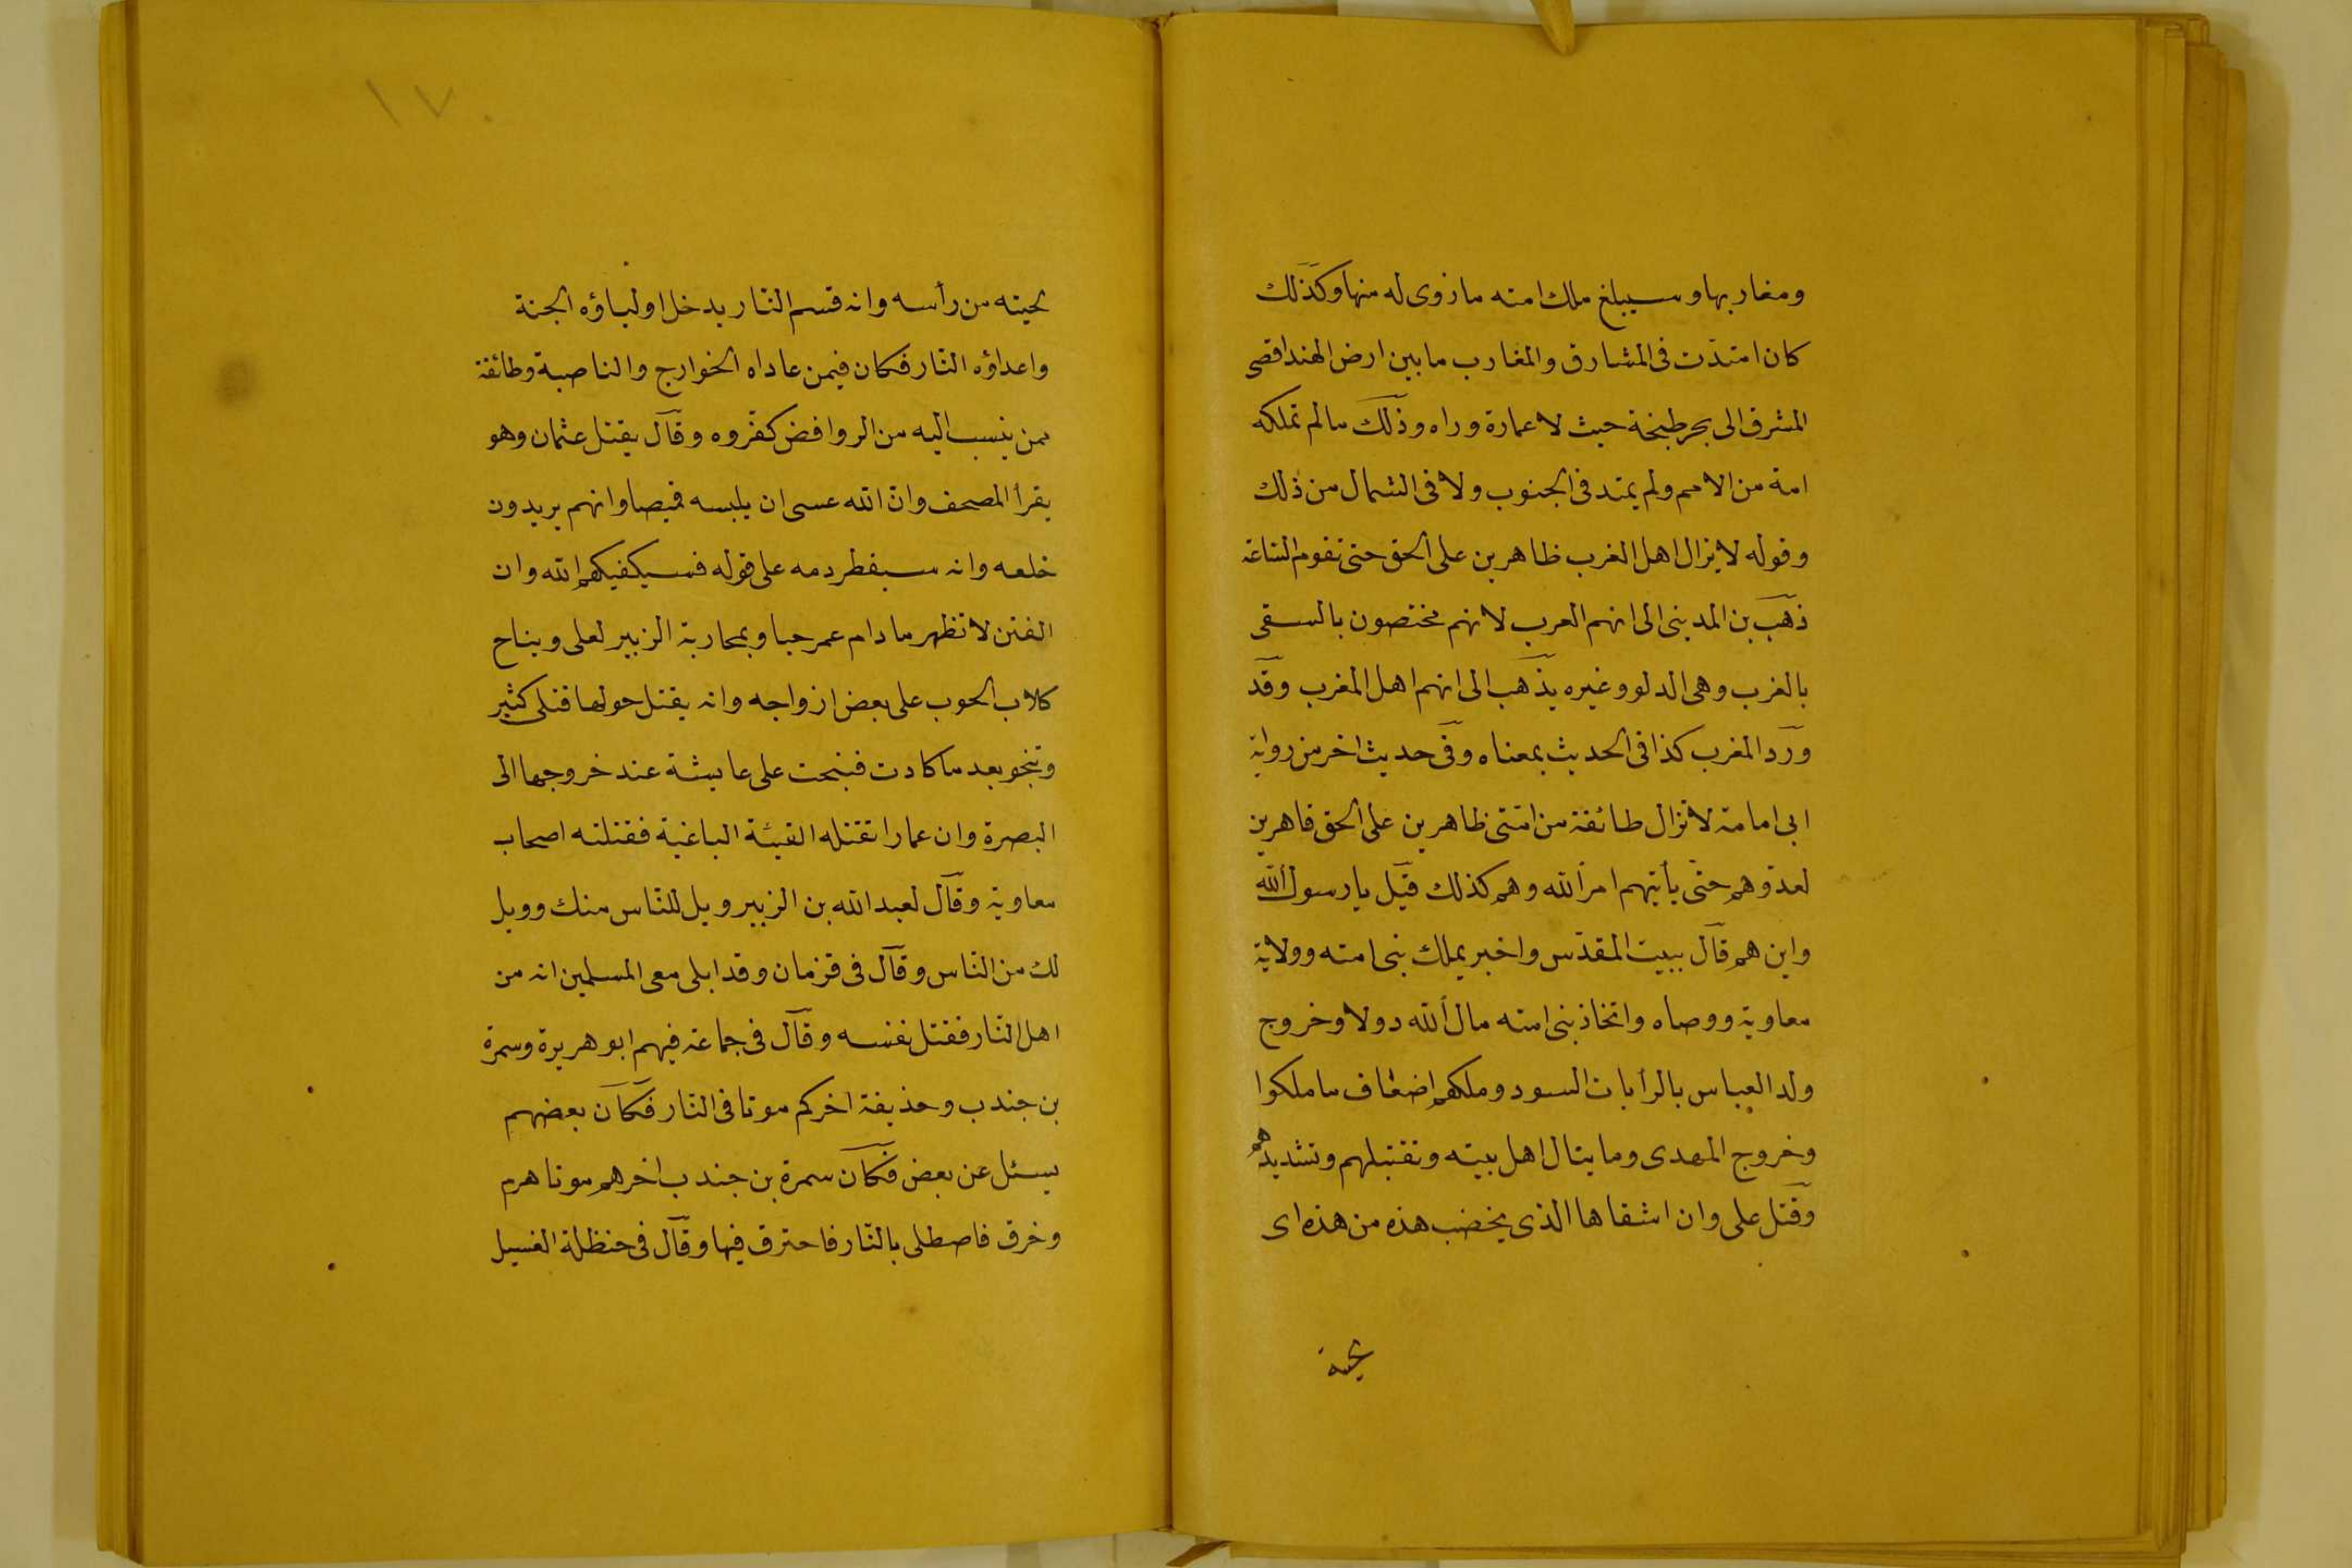 ومغاربها وسيبلغ ملك امته ما زوى له منها وكذلك
كان امتدّت فى المشارق والمغارب ما بين ارض الهند اقصى
المشرق الى بحر طنجة حيث لا عمارة وراه وذلك ما لم تملكه
امة من الامم ولم يمتد فى الجنوب ولا فى الشمال من ذلك
وقوله لا يزال اهل الغرب ظاهرين على الحق حتى تقوم الساعة
ذهب بن المدينى الى انهم العرب لانهم مختصون بالسقى
بالغرب وهى الدلو وغيره يذهب الى انهم اهل المغرب وقد
ورد المغرب كذا فى الحديث بمعناه وفى حديث اخر من رواية
ابى امامة لا تزال طائفة من امّتى ظاهرين على الحق قاهرين
لعدوّهم حتّى يأتيهم امر الله وهم كذلك قيل يا رسول الله
واين هم قال ببيت المقدّس واخبر بملك بنى امته وولاية
معاوية ووصاه واتخاذ بنى امته مال الله دولا وخروج
ولد العباس بالرأيات السود وملكهم اضعاف ما ملكوا
وخروج المهدى وما ينال اهل بيته وتقتيلهم وتشديدهم
وقتل على وان اشقاها الذى يخضب هذه من هذه اى
لحيته
١٧٠
لحيته من رأسه وانه قسم النّار يدخل اولياؤه الجنة
واعداؤه النّار فكان فيمن عاداه الخوارج والناصبة وطائفة
ممن ينسب اليه من الروافض كفّروه وقال يقتل عثمان وهو
يقرأ المصحف وانّ الله عسى ان يلبسه قميصا وانهم يريدون
خلعه وانه سيقطر دمه على قوله فسيكفيكهم الله وان
الفتن لا تظهر ما دام عمر حيا وبمحاربة الزبير لعلى وبنباح
كلاب الحوب على بعض ازواجه وانه يقتل حولها قتلى كثير
وتنجو بعد ما كادت فنبحت على عايشة عند خروجها الى
البصرة وان عمارا تقتله الفيئة الباغية فقتلته اصحاب
معاوية وقال لعبد الله بن الزبير ويل للنّاس منك وويل
لك من النّاس وقال فى قزمان وقد ابلى مع المسلمين انه من
اهل النّار فقتل نفسه وقال فى جماعة فيهم ابو هريرة وسمرة
بن جندب وحذيفة اخركم موتا فى النّار فكان بعضهم
يسئل عن بعض فكان سمرة بن جندب اخرهم موتا هرم
وخرق فاصطلى بالنّار فاحترق فيها وقال فى حنظلة الغسيل